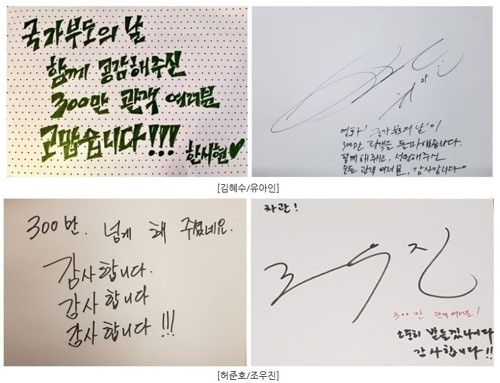 국가부도의 날
함께 공감해주신
300만 관객 여러분
고맙습니다!!!
한시현♥
영화! 국가부도의 날이
300만 관객을 돌파했습니다.
함께 해주신, 성원해주신
모든 관객 여러분, 감사합니다♡
[김혜수/유아인]
300만. 넘게 해 주셨네요.
감사합니다.
감사합니다
감사합니다!!!
차관!
조우진
300만 관객 여러분!
소중히 받들겠나이다
감사합니다!!
[허준호/조우진]